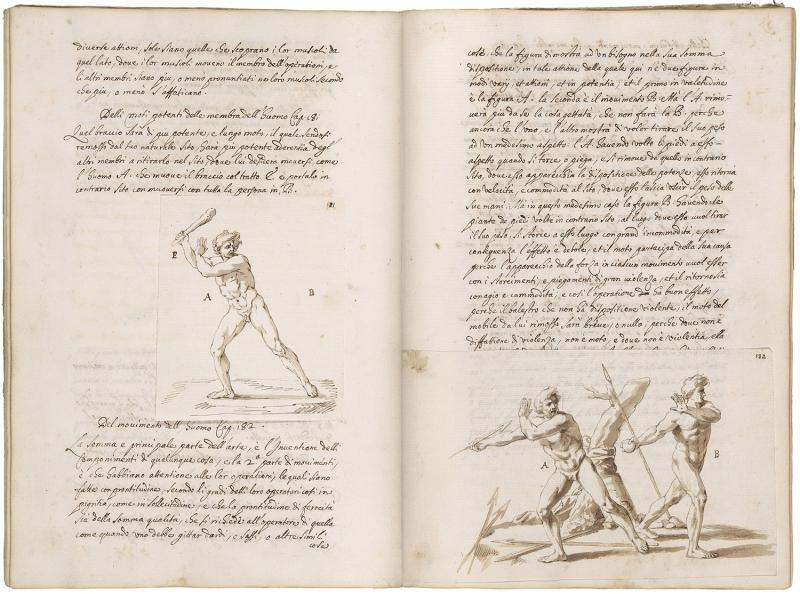 diverse attioni, sole siano quelle che scoprano i lor muscoli da
quel lato, dove i lor muscoli moveno il membro dell'operationi, e
li altri membri siano piu, o meno pronuntiati ne loro muscoli secondo
che piu, o meno s'affaticano.
Delli moti potenti delle membra dell'Huomo Cap. 181.
Quel braccio sera di piu potente, e lungo moto, il quale sendosi
remosso dal suo naturale sito, hara piu potente aderentia degl'
altri membri a ritirarlo nel sito, dove lui desidera moversi, come
l'huomo A. che muove il braccio col tratto E. e portalo in
contrario sito con muoversi con tutta la persona in B.
181
E
A
B
Del movimento dell'huomo Cap. 182.
La somma e principale parte dell'arte, è l'Inventione delli
componimenti di qualunque cosa, e la 2ª parte di movimenti,
è che habbiano attentione alle lor operationi, le quali siano
fatte con prontitudine, secondo li gradi delli loro operatori così in
pigritia, come in sollecitudine, e che la prontitudine di ferocità
sia della somma qualità, che si richiede all'operatore di quella
come quando uno debbe gittar dardi, o sassi, o altre simili
cose
cose, che la figura dimostra ad un bisogno nella sua somma
dispositione, in tale attione, della quale qui n'è due figure in
modi varij, et ationi, et in potentia, et il primo in valetudine
è la figura A. la seconda è il movimento B. Ma l'A rimo-
verà piu da se la cosa gettata, che non farà la B. perche
ancora che l'uno, e l'altro mostrà di voler tirare il suo peso
ad un medesimo aspetto. l'A havendo volto li piedi a esso
aspetto quando si torce o piega, e si rimove da quello in contrario
sito, dove esso apparecchia la dispositione della potenza, esso ritorna
con velocità, e commodità al sito, dove esso lascia uscir il peso delle
sue mani. Ma in questo medesimo caso la figura B. havendo le
piante de piedi volte in contrario sito, al luogo dove esso vuol tirar
il suo peso, si storce a esso luogo con grand'incommodità, e per
conseguenza l'effetto è debole, et il moto partecipa della sua causa
perche l'apparecchio della forza in ciascun movimento vuol esser
con istorcimenti, e piegamenti di gran violenza, et il ritorno sia
con agio e commodità, e così l'operatione ha buon effetto,
perche il balestro che non ha dispositione violente, il moto del
mobile da lui rimosso sarà breve, o nullo; perche dove non è
disfatione di violenza, non è moto, e dove non è violentia, ella
182
A
B